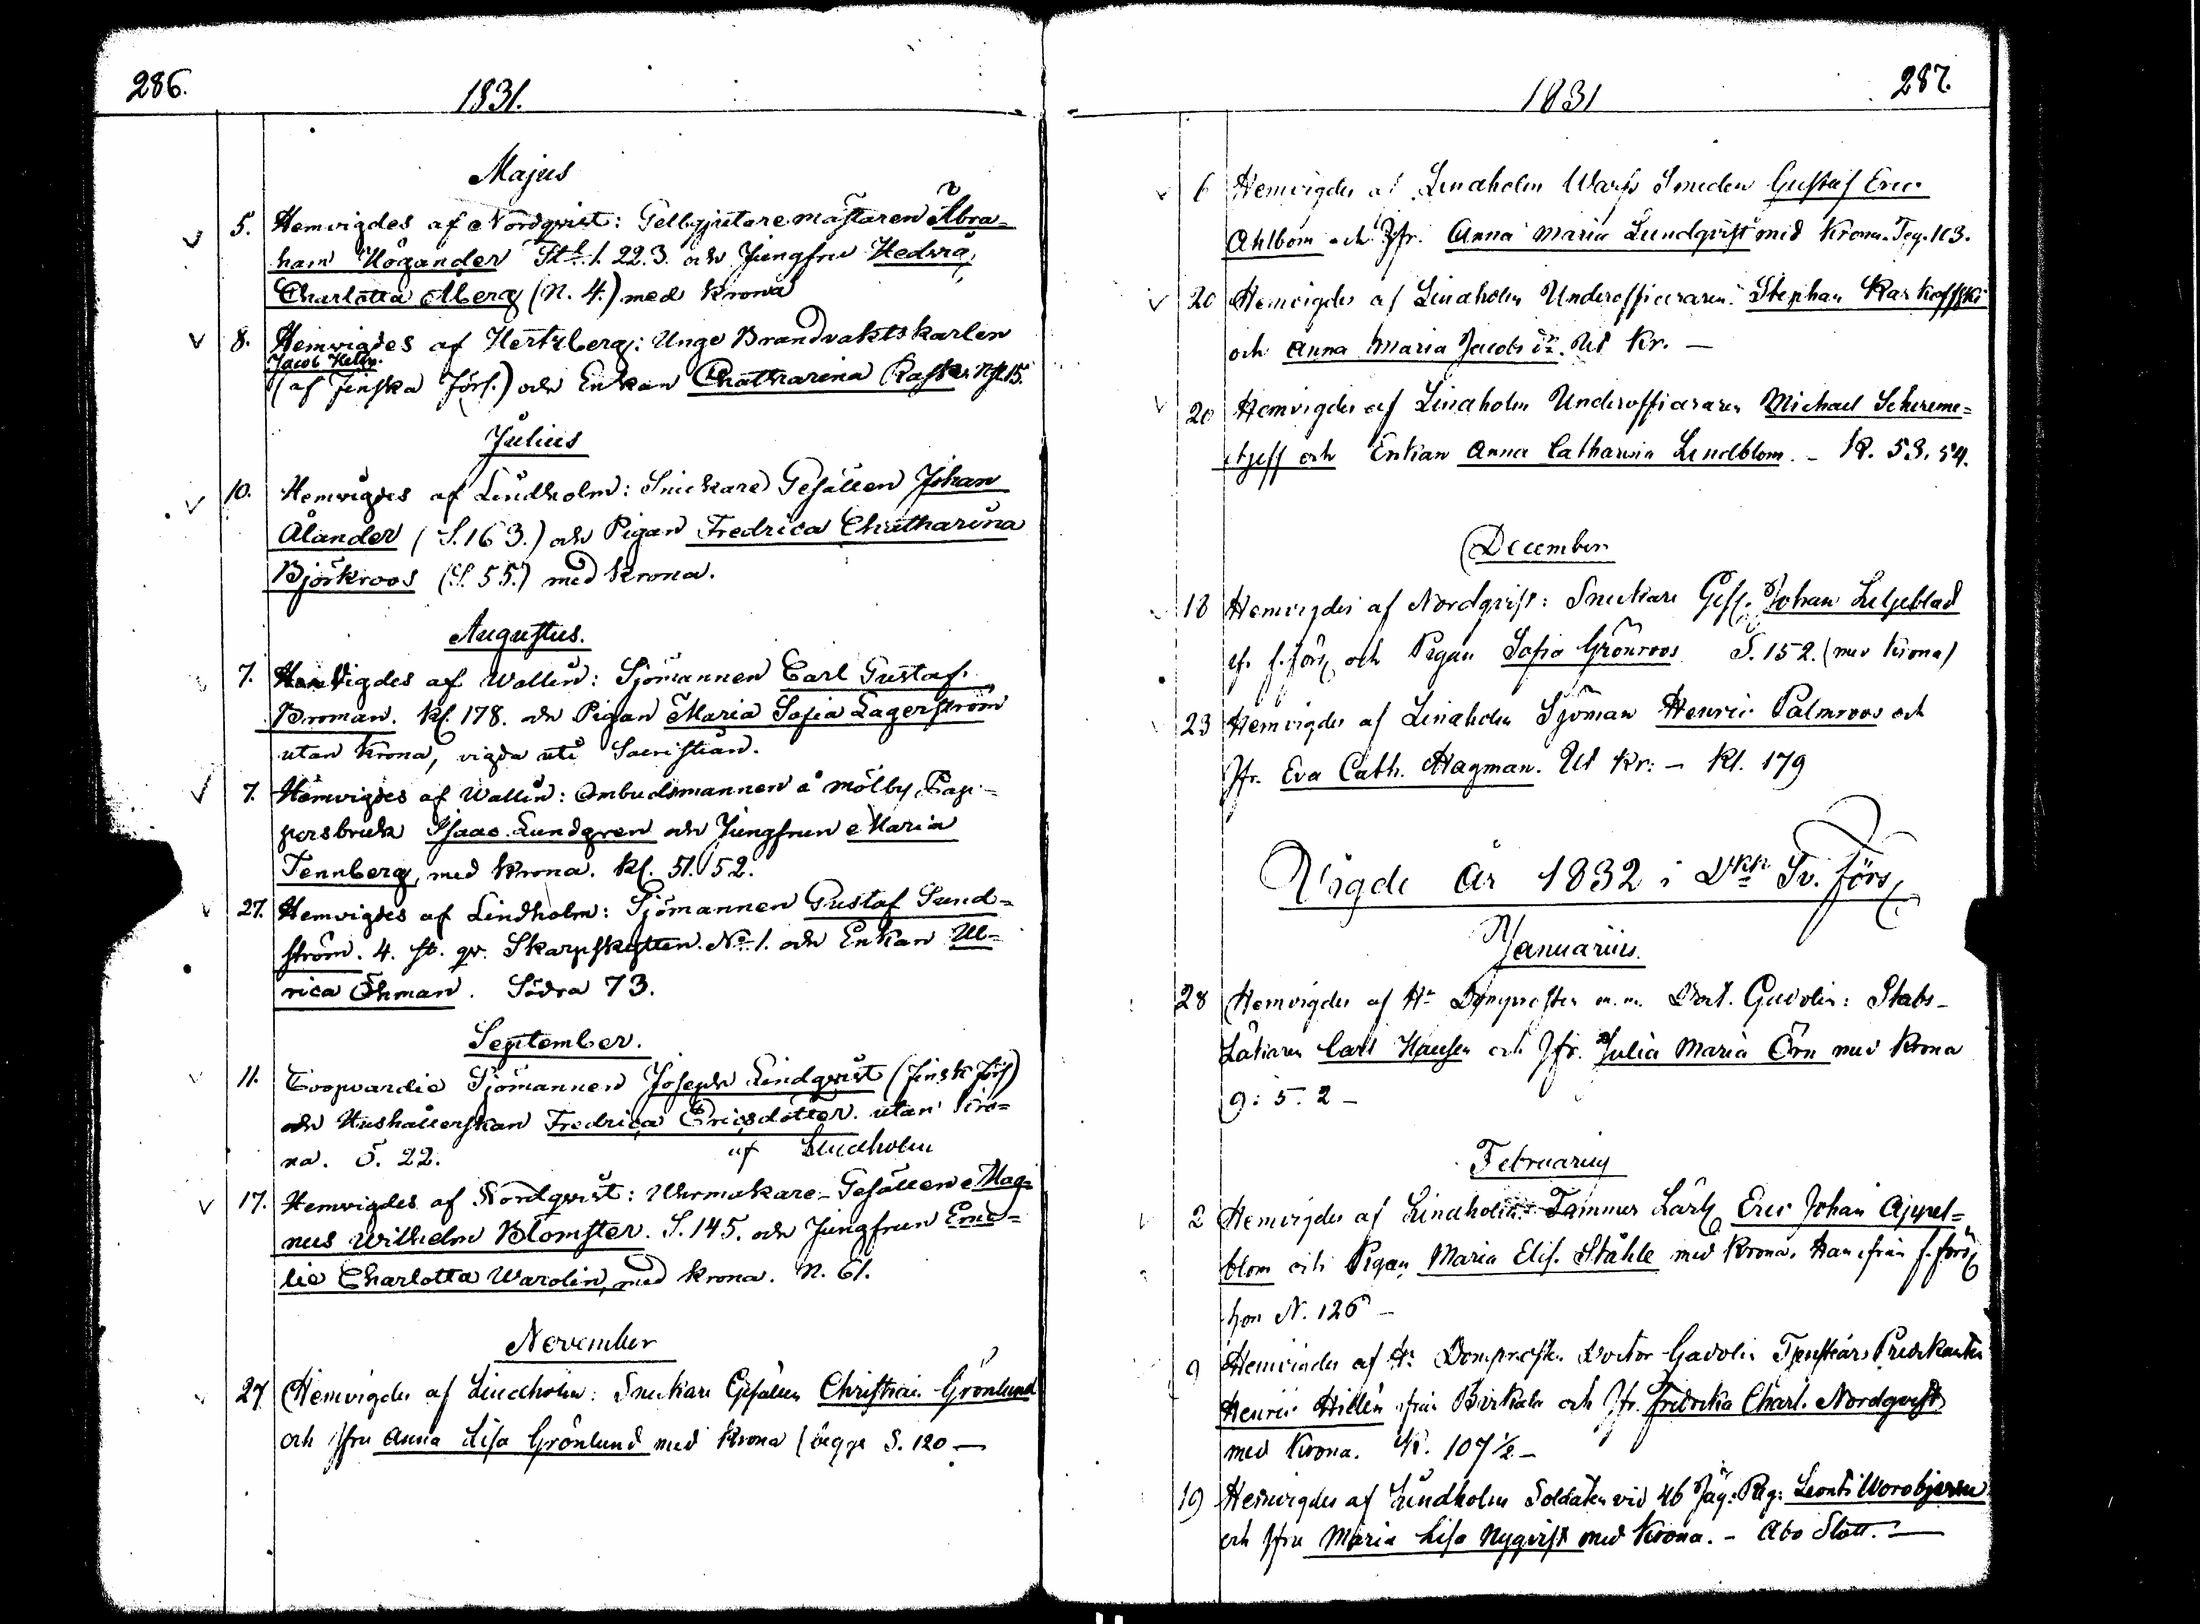 286.
1831.
Majus
5. Hemvigdes af Nordqvist: Gelbgjutaremästaren Abra-
ham Högander Stk. 1. 22. 3. och Jungfru Hedvig
Charlotta Åberg (N. 4.) med Krona
8. Hemvigdes af Hertzberg: Unge Brandvaktskarlen
Jacob
(af finska förs.) och Enkan Chatharina Rask. 15.
Julius
10. Hemvigdes af Lindholm: Snickare Gesällen Johan
Ålander (S. 163.) och Pigan Fredrica Chatharina
Björkroos (S. 55.) med Krona.
Augustus.
7. Hemvigdes af Wallin: Sjömannen Carl Gustaf
Broman. Kl. 178. och Pigan Maria Sofia Lagerström
utan Krona, vigda uti Sacristian.
7. Hemvigdes af Wallin: Ombudsmannen å Mölby Pap-
persbruk Isaac Lundgren och Jungfrun Maria
Tennberg, med Krona. Kl. 51. 52.
27. Hemvigdes af Lindholm: Sjömannen Gustaf Sund-
ström. 4. st. qv. Skarpskytten No 1. och Enkan Ul-
rica Öhman. Södra 73.
September.
11. Coopvardie Sjömannen Joseph Lindqvist (finsk förs)
och Hushållerskan Fredrica Ericsdotter. utan Kro-
na. S. 22. af Lindholm
17. Hemvigdes af Nordqvist: Urmakare-Gesällen Mag-
nus Wilhelm Blomster. S. 145. och Jungfrun Emi-
lie Charlotta Warolin, med Krona. N. 61.
November
27 Hemvigdes af Lindholm: Snickare Gesällen Christian Grönlund
och Jfru Anna Lisa Grönlund med Krona (begge S. 120 —
287.
1831
6 Hemvigdes af Lindholm Warfs Smeden Gustaf Eric
Ahlbom och Jfr. Anna Maria Lundqvist med Krona. Teg. 103.
20 Hemvigdes af Lindholm Underofficeraren Stephan Karkoffski
och Anna Maria Jacobs dr. Ut Kr. —
20 Hemvigdes af Lindholm Underofficeraren Michael Schereme-
tjeff och Enkan Anna Catharina Lindblom. — K. 53. 54.
December
18 Hemvigdes af Nordqvist: Snickare Gess. Johan Liljeblad
f. förs och Pigan Sofia Grönroos S. 152. (med Krona)
23 Hemvigdes af Lindholm Sjöman Henric Palmroos och
Jfr. Eva Cath. Hagman. Ut Kr: — Kl. 179
Vigde år 1832 i Dkn Sv. förs
Januarius.
28 Hemvigdes af Hr Domprosten m.m. Doct. Gadolin: Stabs-
Läkaren Carl Hausen och Jfr. Julia Maria Örn med Krona
9: 5. 2 —
Februarius
2 Hemvigdes af Lindholm: Timmer Lärl Eric Johan Appel-
blom och Pigan Maria Elis. Ståhle med Krona. Han från f. förs
hon N. 126 —
9 Hemvigdes af Hr Domprosten Doctor Gadolin Predikanten
Henric Hillén från Birkala och Jfr. Fredrika Charl. Nordqvist
med Krona. 107 ½ —
19 Hemvigdes af Lindholm Soldaten vid 46 Jäg: Reg: Leonti Worobjeren
och Jfru Maria Lisa Nyqvist med Krona. — Abo Slott. —